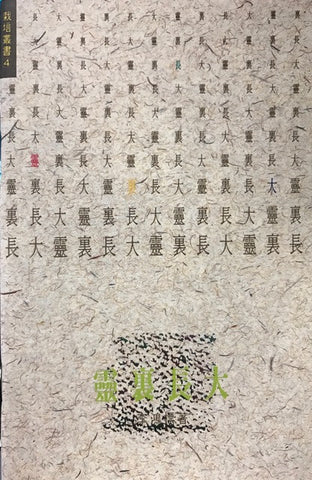 栽培叢書 4
長大靈裏長大靈裏長大靈裏
大靈裏長大靈裏長大靈裏長
靈裏長大靈裏長大靈裏長大
靈裏長大靈裏長大靈裏長大靈
裏長大靈裏長大靈裏長大靈裏
長大靈裏長大靈裏長大靈裏長
大靈裏長大靈裏長大靈裏長大
靈裏長大靈裏長大靈裏長大靈
裏長大靈裏長大靈裏長大靈裏
長大靈裏長大靈裏長大靈裏長
靈裏長大
鴻 著